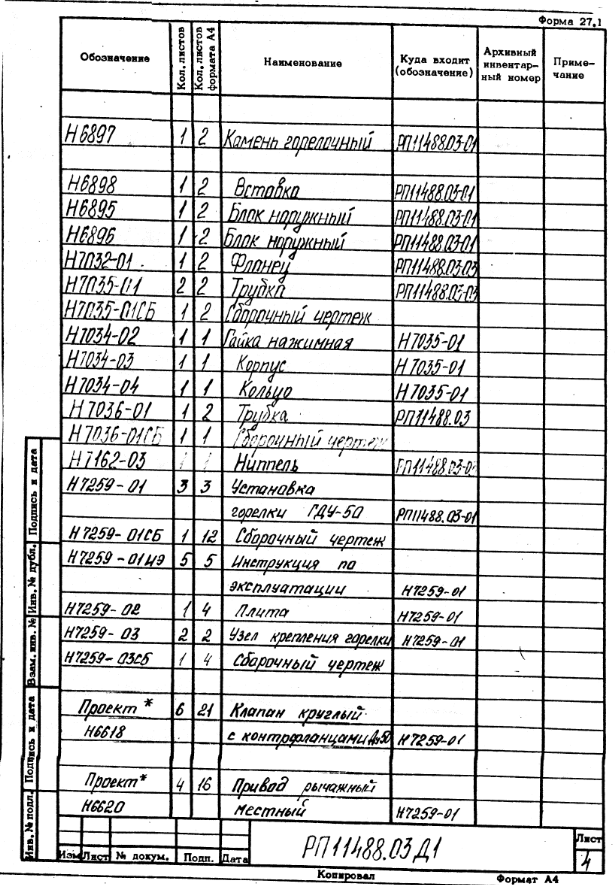 Форма 27.1
Обозначение Кол. листов Кол. листов формата А4 Наименование Куда входит (обозначение) Архивный инвентарный номер Примечание
Н6897 1 2 Камень горелочный РП11488.03-01
Н6898 1 2 Вставка РП11488.03-01
Н6895 1 2 Блок наружный РП11488.03-01
Н6896 1 2 Блок наружный РП11488.03-01
Н7032-01 1 2 Фланец РП11488.03-03
Н7035-01 2 2 Трубка РП11488.03-03
Н7035-01СБ 1 2 Сборочный чертеж
Н7034-02 1 1 Гайка нажимная Н7035-01
Н7034-03 1 1 Корпус Н7035-01
Н7034-04 1 1 Кольцо Н7035-01
Н7036-01 1 2 Трубка РП11488.03
Н7036-01СБ 1 1 Сборочный чертеж
Н7162-03 1 1 Ниппель
Н7259-01 3 3 Установка
горелки ГДУ-50 РП11488.03-01
Н7259-01СБ 1 12 Сборочный чертеж
Н7259-01ИЭ 5 5 Инструкция по
эксплуатации Н7259-01
Н7259-02 1 4 Плита Н7259-01
Н7259-03 2 2 Узел крепления горелки Н7259-01
Н7259-03СБ 1 4 Сборочный чертеж
Проект* 6 21 Клапан круглый
Н6618 с контрфланцами Ду50 Н7259-01
Проект* 4 16 Привод рычажный
Н6620 местный Н7259-01
Инв. № подл. Подпись и дата Взам. инв. № Инв. № дубл. Подпись и дата
Изм Лист № докум. Подп. Дата
РП11488.03Д1
Лист
4
Копировал Формат А4